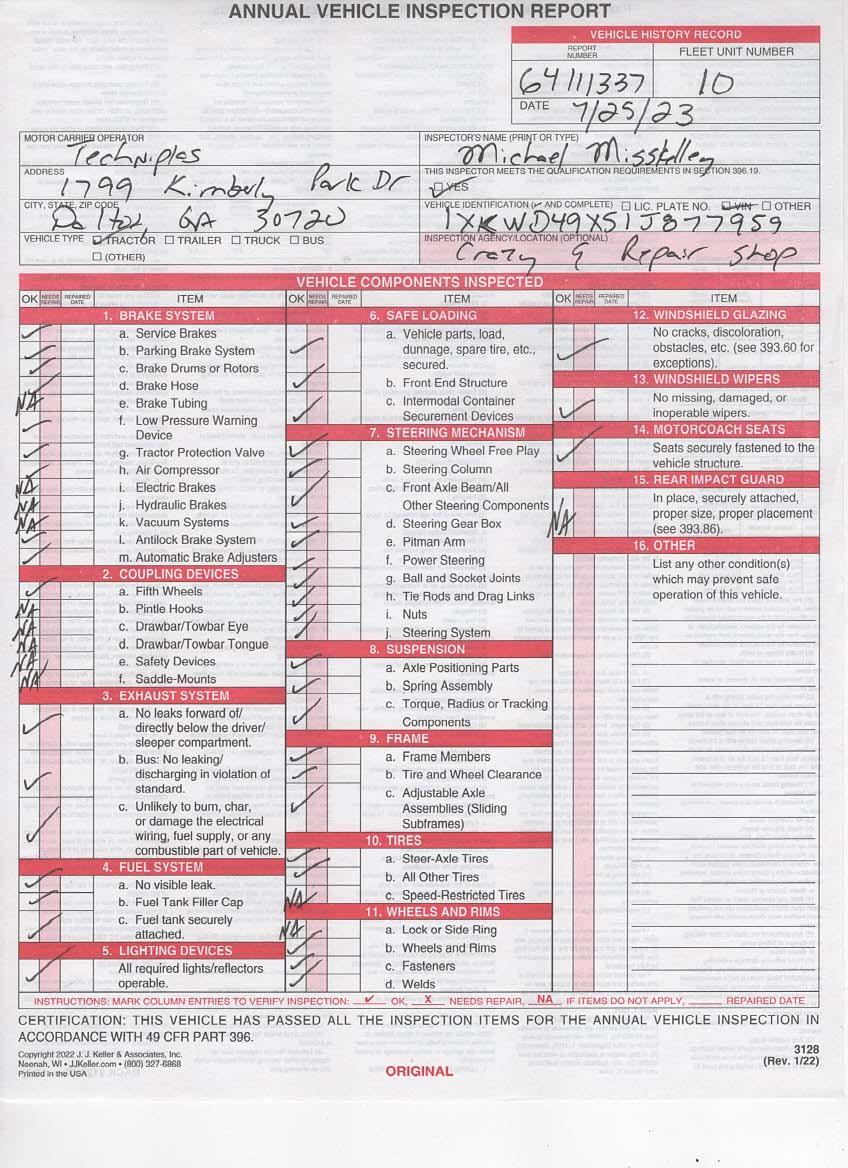 ANNUAL VEHICLE INSPECTION REPORT
VEHICLE HISTORY RECORD
REPORT NUMBER
64111337
FLEET UNIT NUMBER
10
DATE 7/25/23
MOTOR CARRIER OPERATOR
Techniplas
ADDRESS
1799 Kimberly Park Dr
CITY, STATE, ZIP CODE
Dalton, GA 30720
VEHICLE TYPE ☑ TRACTOR ☐ TRAILER ☐ TRUCK ☐ BUS
☐ (OTHER)
INSPECTOR'S NAME (PRINT OR TYPE)
Michael Misskelley
THIS INSPECTOR MEETS THE QUALIFICATION REQUIREMENTS IN SECTION 396.19.
☑ YES
VEHICLE IDENTIFICATION (✓ AND COMPLETE) ☐ LIC. PLATE NO. ☑ VIN ☐ OTHER
1XKWD49X51J877959
INSPECTION AGENCY/LOCATION (OPTIONAL)
Crazy 9 Repair Shop
VEHICLE COMPONENTS INSPECTED
OK NEEDS REPAIR REPAIRED DATE ITEM
1. BRAKE SYSTEM
✓ a. Service Brakes
✓ b. Parking Brake System
✓ c. Brake Drums or Rotors
✓ d. Brake Hose
NA e. Brake Tubing
✓ f. Low Pressure Warning
Device
✓ g. Tractor Protection Valve
✓ h. Air Compressor
NA i. Electric Brakes
NA j. Hydraulic Brakes
NA k. Vacuum Systems
✓ l. Antilock Brake System
✓ m. Automatic Brake Adjusters
2. COUPLING DEVICES
✓ a. Fifth Wheels
NA b. Pintle Hooks
NA c. Drawbar/Towbar Eye
NA d. Drawbar/Towbar Tongue
NA e. Safety Devices
NA f. Saddle-Mounts
3. EXHAUST SYSTEM
✓ a. No leaks forward of/
directly below the driver/
sleeper compartment.
✓ b. Bus: No leaking/
discharging in violation of
standard.
✓ c. Unlikely to burn, char,
or damage the electrical
wiring, fuel supply, or any
combustible part of vehicle.
4. FUEL SYSTEM
✓ a. No visible leak.
✓ b. Fuel Tank Filler Cap
✓ c. Fuel tank securely
attached.
5. LIGHTING DEVICES
✓ All required lights/reflectors
operable.
OK NEEDS REPAIR REPAIRED DATE ITEM
6. SAFE LOADING
✓ a. Vehicle parts, load,
dunnage, spare tire, etc.,
secured.
✓ b. Front End Structure
✓ c. Intermodal Container
Securement Devices
7. STEERING MECHANISM
✓ a. Steering Wheel Free Play
✓ b. Steering Column
✓ c. Front Axle Beam/All
Other Steering Components
✓ d. Steering Gear Box
✓ e. Pitman Arm
✓ f. Power Steering
✓ g. Ball and Socket Joints
✓ h. Tie Rods and Drag Links
✓ i. Nuts
✓ j. Steering System
8. SUSPENSION
✓ a. Axle Positioning Parts
✓ b. Spring Assembly
✓ c. Torque, Radius or Tracking
Components
9. FRAME
✓ a. Frame Members
✓ b. Tire and Wheel Clearance
✓ c. Adjustable Axle
Assemblies (Sliding
Subframes)
10. TIRES
✓ a. Steer-Axle Tires
✓ b. All Other Tires
NA c. Speed-Restricted Tires
11. WHEELS AND RIMS
NA a. Lock or Side Ring
✓ b. Wheels and Rims
✓ c. Fasteners
✓ d. Welds
OK NEEDS REPAIR REPAIRED DATE ITEM
12. WINDSHIELD GLAZING
✓ No cracks, discoloration,
obstacles, etc. (see 393.60 for
exceptions).
13. WINDSHIELD WIPERS
✓ No missing, damaged, or
inoperable wipers.
14. MOTORCOACH SEATS
✓ Seats securely fastened to the
vehicle structure.
15. REAR IMPACT GUARD
NA In place, securely attached,
proper size, proper placement
(see 393.86).
16. OTHER
List any other condition(s)
which may prevent safe
operation of this vehicle.
INSTRUCTIONS: MARK COLUMN ENTRIES TO VERIFY INSPECTION: ✓ OK, X NEEDS REPAIR, NA IF ITEMS DO NOT APPLY, REPAIRED DATE
CERTIFICATION: THIS VEHICLE HAS PASSED ALL THE INSPECTION ITEMS FOR THE ANNUAL VEHICLE INSPECTION IN
ACCORDANCE WITH 49 CFR PART 396.
Copyright 2022 J. J. Keller & Associates, Inc.
Neenah, WI • JJKeller.com • (800) 327-6868
Printed in the USA
ORIGINAL
3128
(Rev. 1/22)